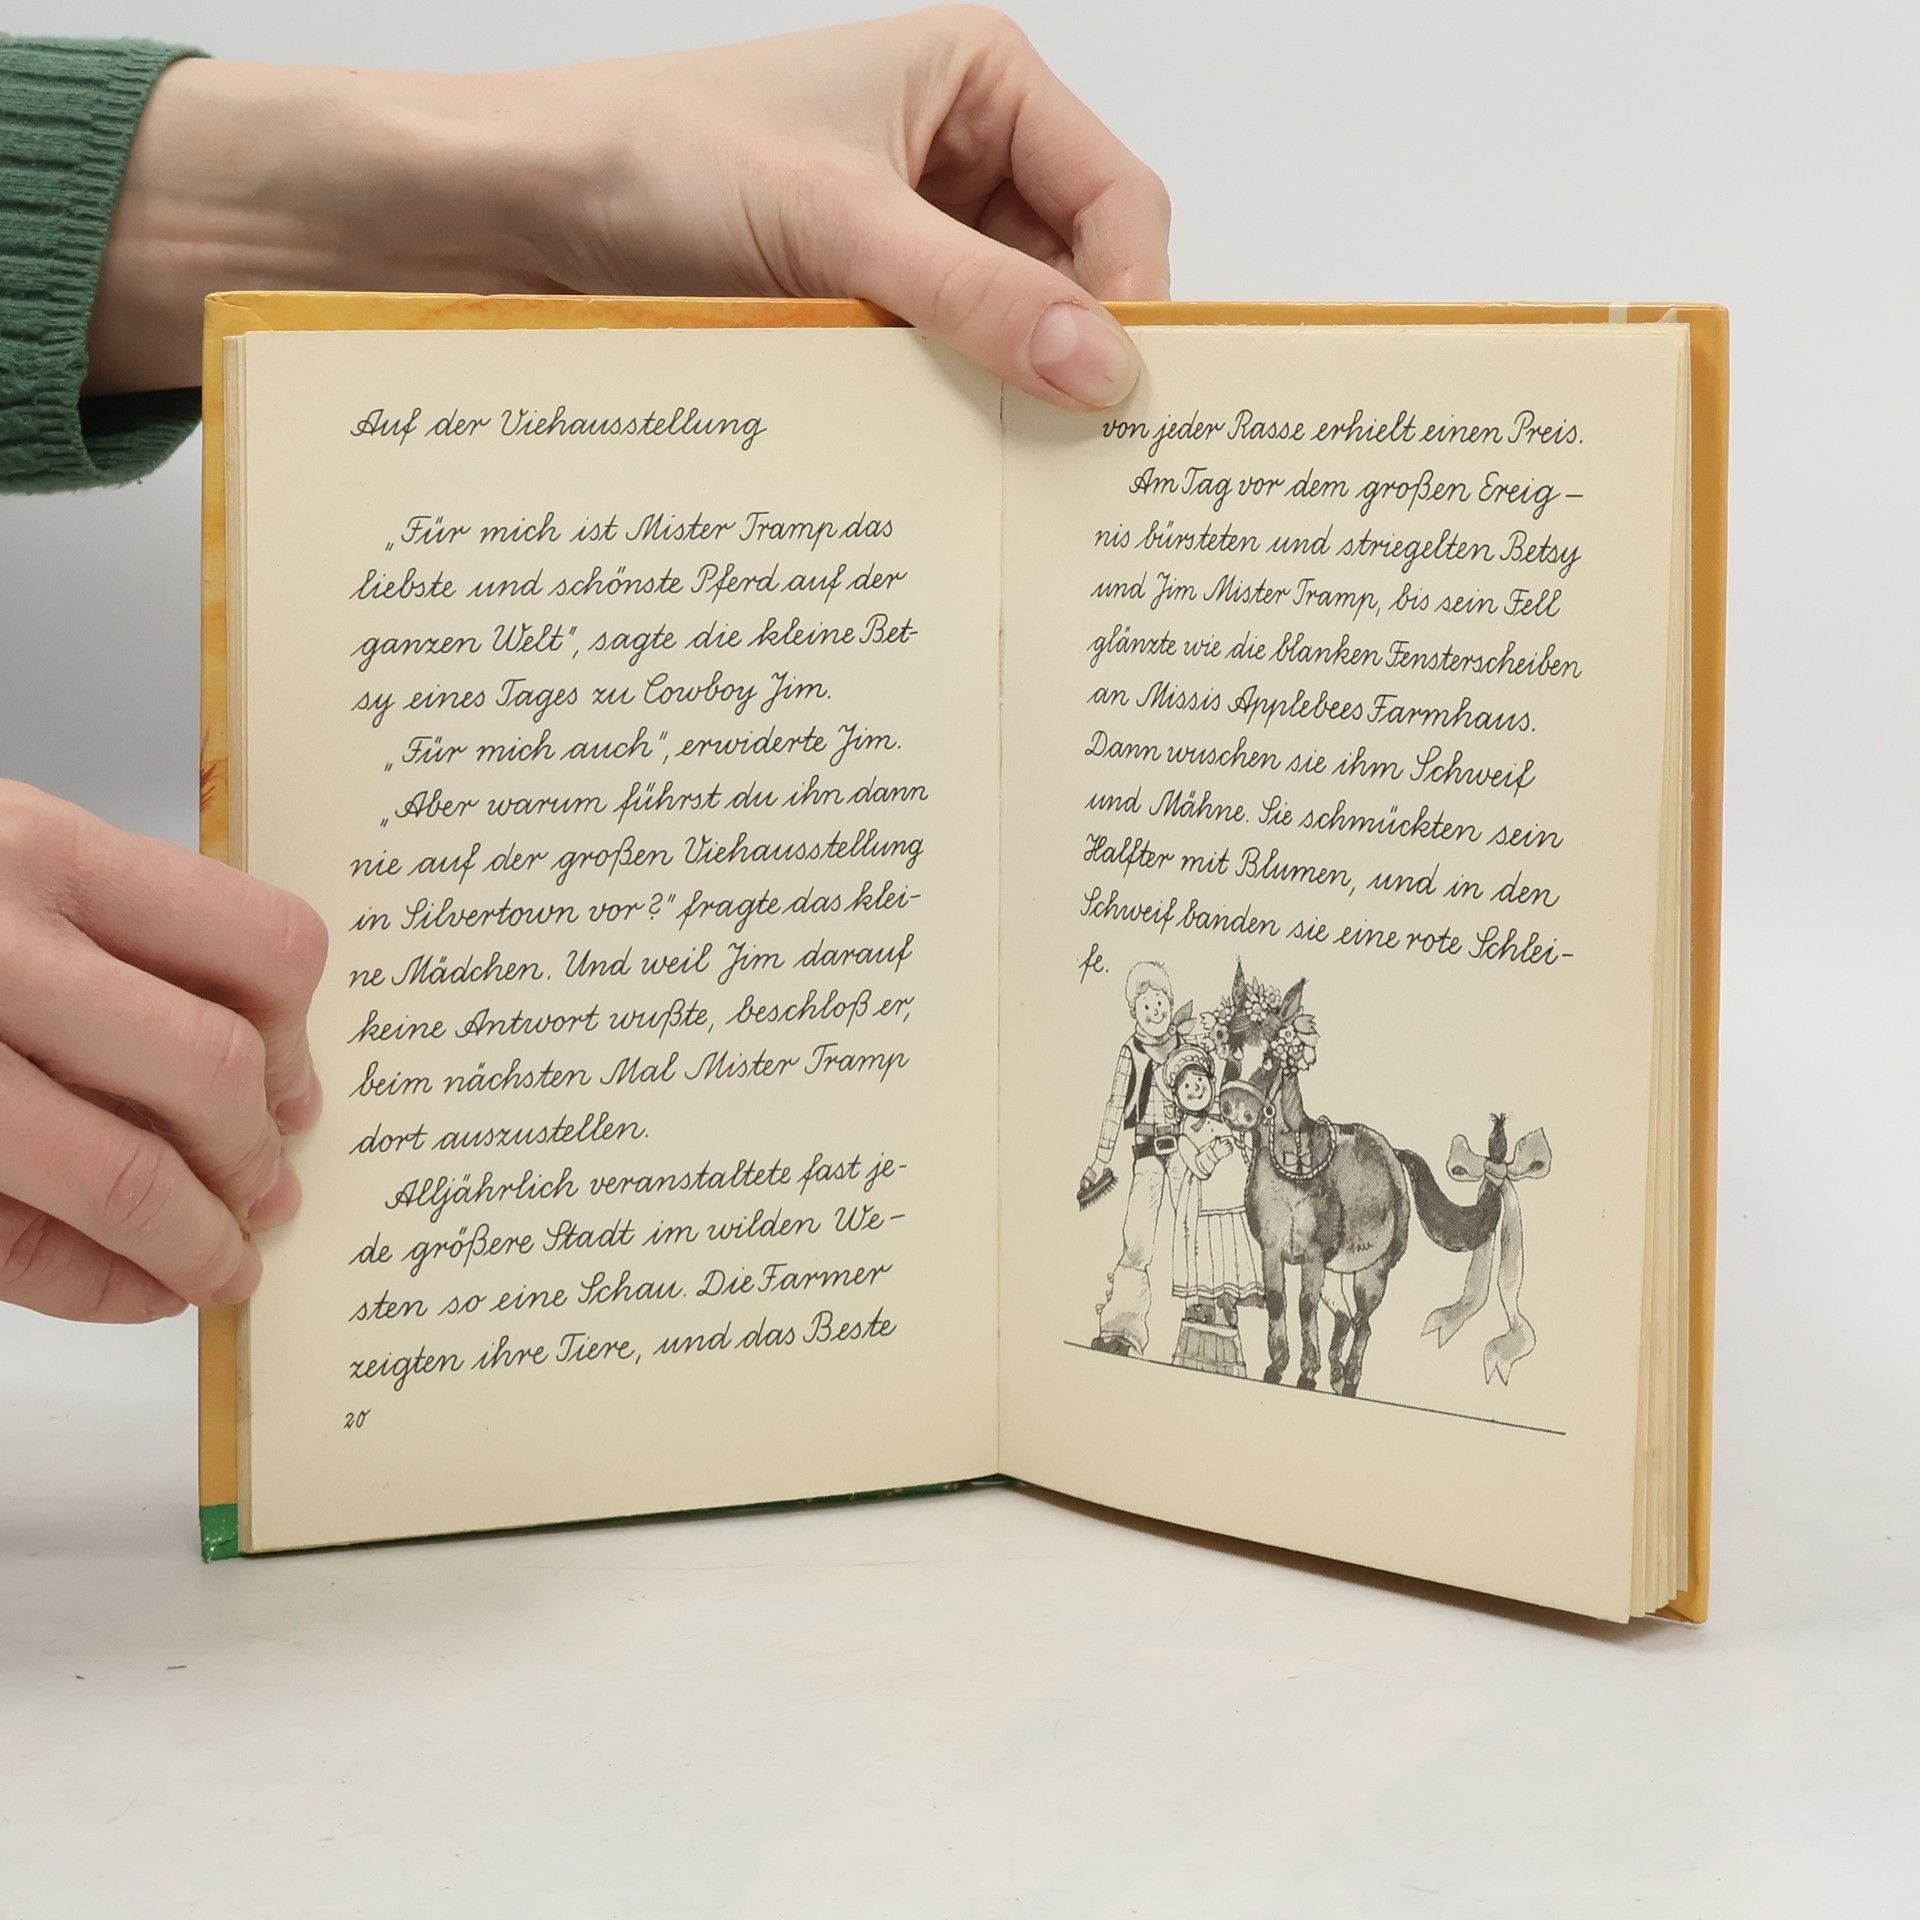 Auf der Viehausstellung
„Für mich ist Mister Tramp das
liebste und schönste Pferd auf der
ganzen Welt", sagte die kleine Bet-
sy eines Tages zu Cowboy Jim.
„Für mich auch", erwiderte Jim.
„Aber warum führst du ihn dann
nie auf der großen Viehausstellung
in Silvertown vor?" fragte das klei-
ne Mädchen. Und weil Jim darauf
keine Antwort wußte, beschloß er,
beim nächsten Mal Mister Tramp
dort auszustellen.
Alljährlich veranstaltete fast je-
de größere Stadt im wilden We-
sten so eine Schau. Die Farmer
zeigten ihre Tiere, und das Beste
20
von jeder Rasse erhielt einen Preis.
Am Tag vor dem großen Ereig-
nis bürsteten und striegelten Betsy
und Jim Mister Tramp, bis sein Fell
glänzte wie die blanken Fensterscheiben
an Missis Applebees Farmhaus.
Dann wuschen sie ihm Schweif
und Mähne. Sie schmückten sein
Halfter mit Blumen, und in den
Schweif banden sie eine rote Schlei-
fe.